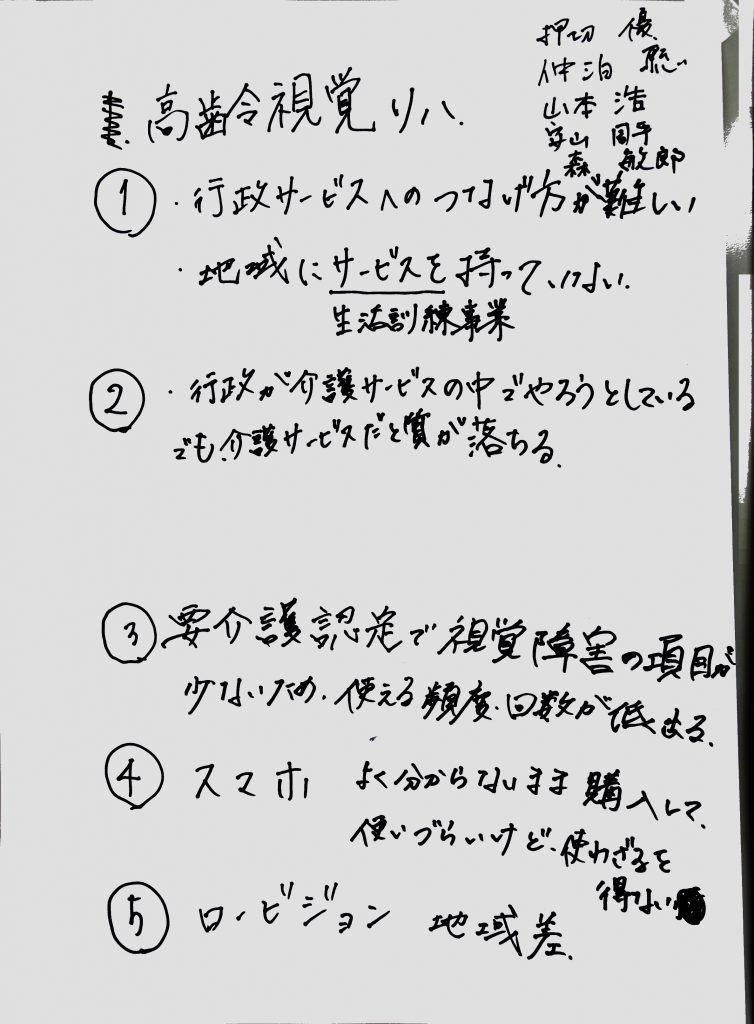 押切 優
仲泊 聡
山本 浩
安山 周平
森 敏郎
高齢視覚リハ.
① ・行政サービスへのつなげ方が難しい
・地域にサービスを持っていけない.
生活訓練事業
② ・行政が介護サービスの中でやろうとしている
でも.介護サービスだと質が落ちる.
③ 要介護認定で視覚障害の項目が
少ないため.使える頻度.回数が低
④ スマホ よく分からないまま購入して.
使いづらいけど.使わざるを
得ない
⑤ ロービジョン 地域差.